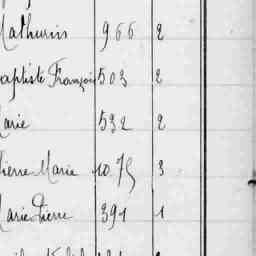 Mathurin 966 2
Baptiste François 503 2
Marie 532 2
Pierre Marie 1075 3
Marie Pierre 391 1